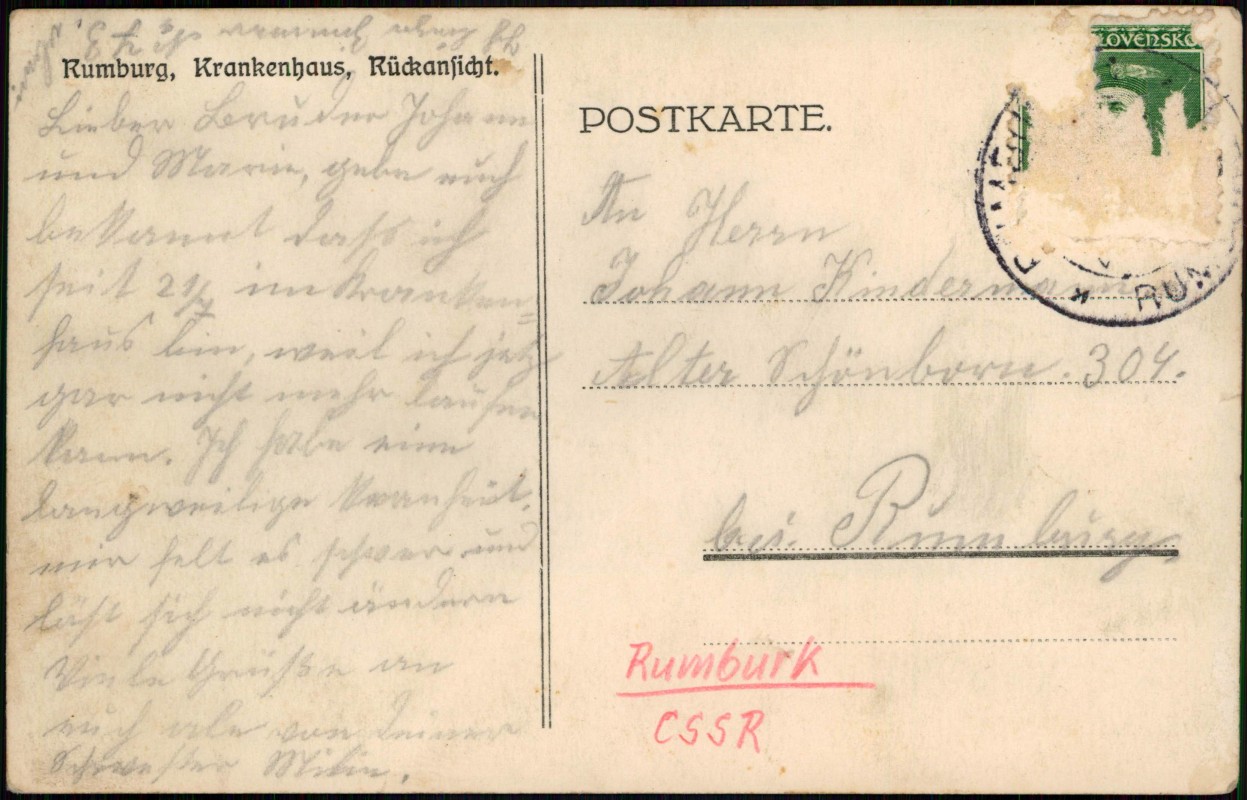 Rumburg, Krankenhaus, Rückansicht.
Lieber Bruder Johann
und Marie, gebe euch
bekannt dass ich
seit 21/7 im Kranken=
haus bin, weil ich jetz
gar nicht mehr laufen
kann. Ich habe eine
langweilige Krankheit.
mir felt es schwer und
läst sich nicht ändern
Viele Grüße an
euch ale von deiner
Schwester
POSTKARTE.
An Herrn
Johann Kindermann
Alter Schönborn. 304.
bei. Rumburg,
Rumburk
CSSR
LOVENSKO
RUM